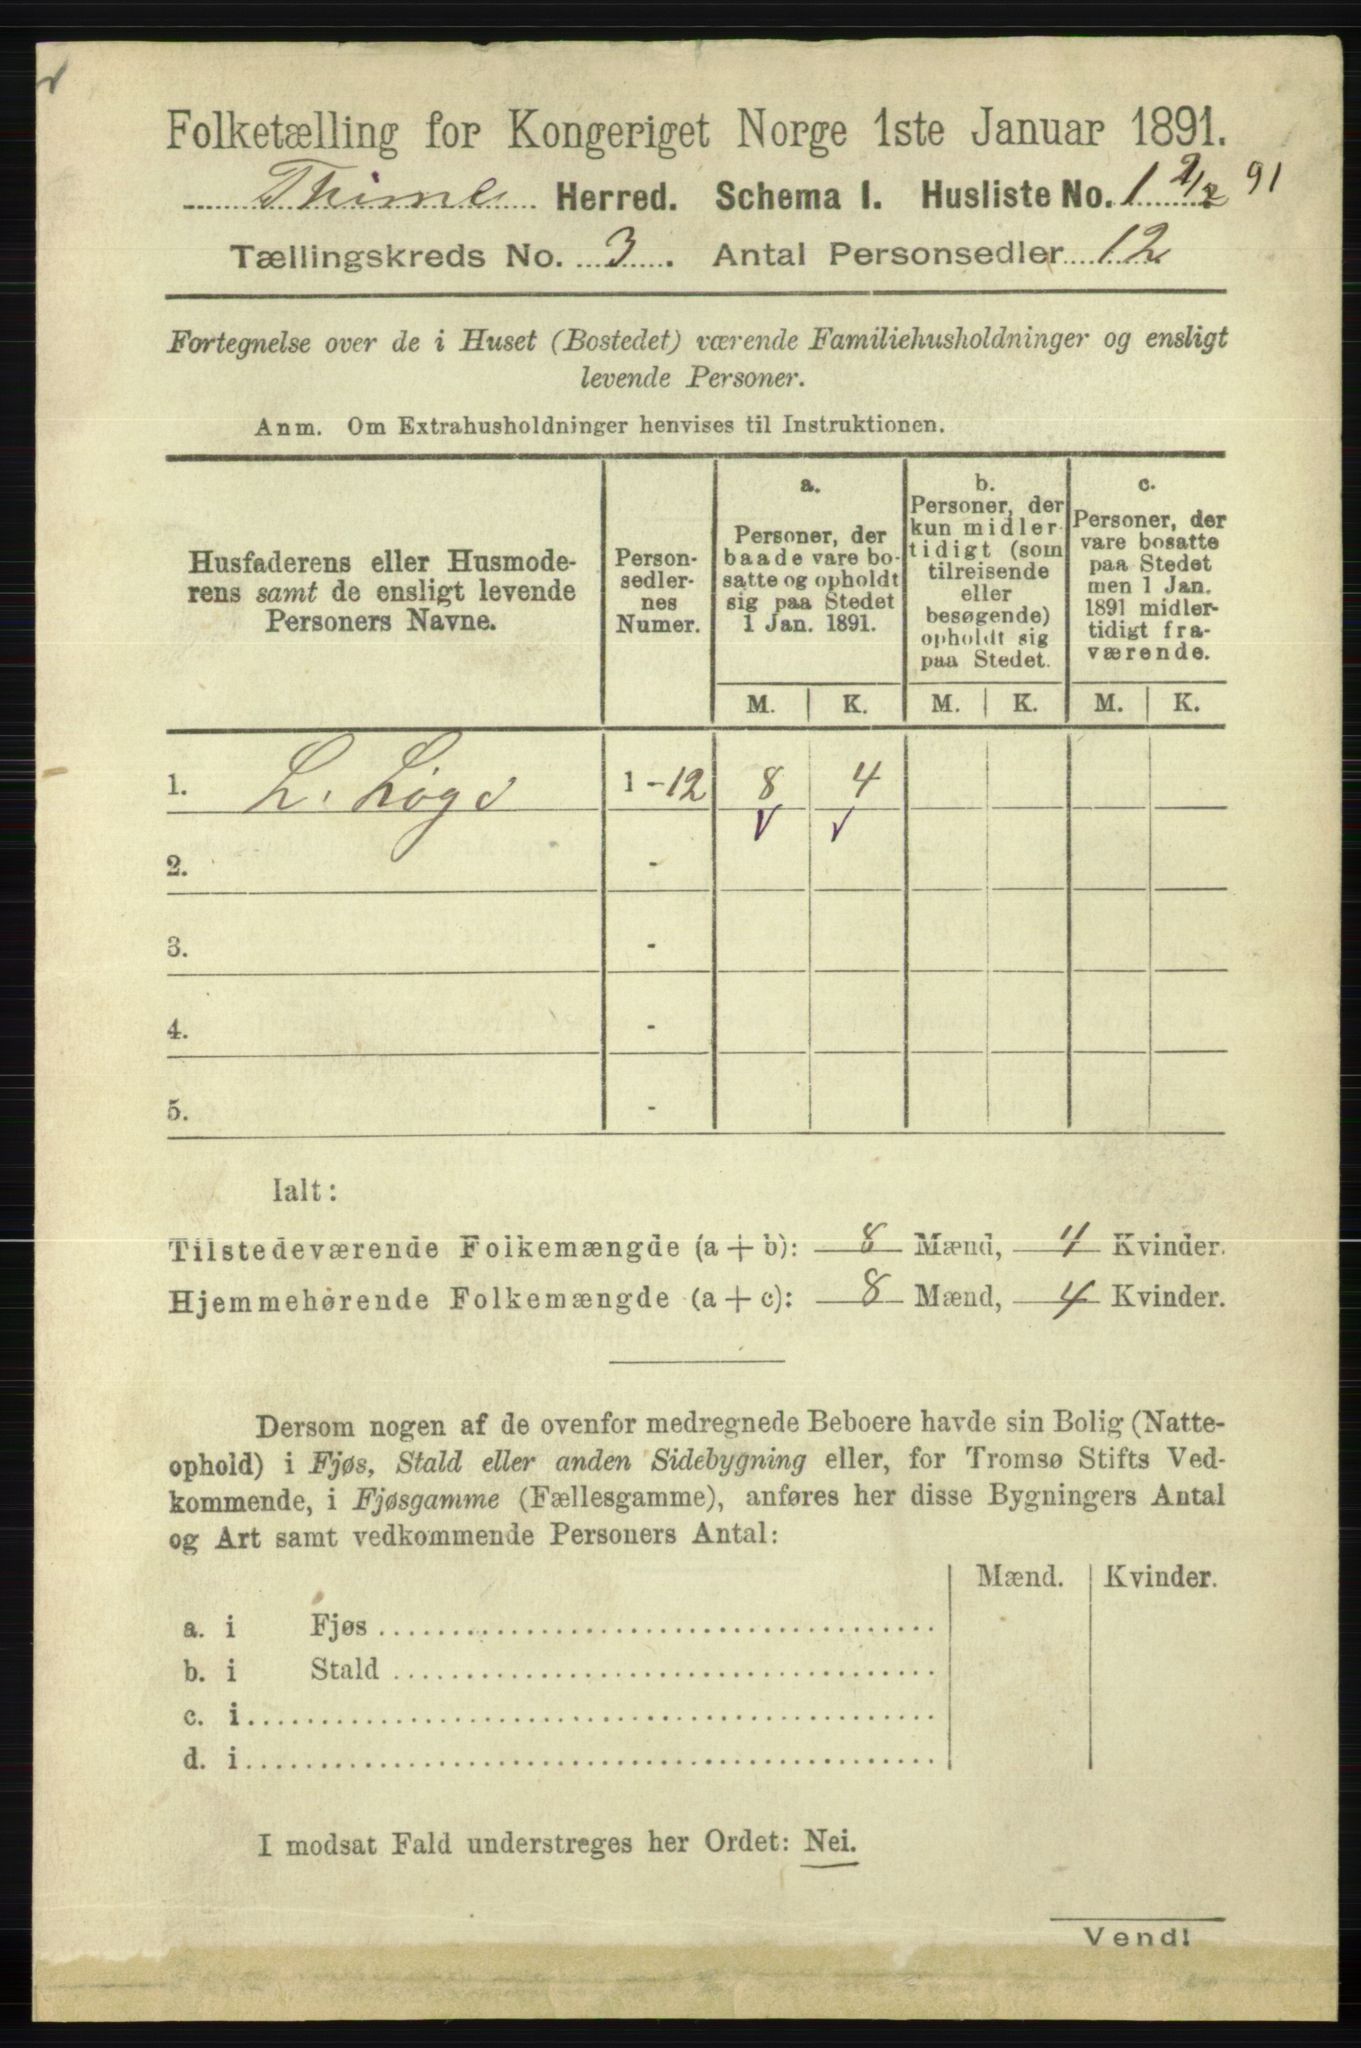 Folketælling for Kongeriget Norge 1ste Januar 1891.
Thime Herred. Schema I. Husliste No. 1 2/2 91
Tællingskreds No. 3. Antal Personsedler 12
Fortegnelse over de i Huset (Bostedet) værende Familiehusholdninger og ensligt
levende Personer.
Anm. Om Extrahusholdninger henvises til Instruktionen.
Husfaderens eller Husmode-
rens samt de ensligt levende
Personers Navne.
Person-
sedler-
nes
Numer.
a.
Personer, der
baade vare bo-
satte og opholdt
sig paa Stedet
1 Jan. 1891.
b.
Personer, der
kun midler-
tidigt (som
tilreisende
eller
besøgende)
opholdt sig
paa Stedet.
c.
Personer, der
vare bosatte
paa Stedet
men 1 Jan.
1891 midler-
tidigt fra-
værende.
M. K. M. K. M. K.
1. L. Løge 1-12 8 4
2. -
3. -
4. -
5. -
Ialt:
Tilstedeværende Folkemængde (a + b): 8 Mænd, 4 Kvinder.
Hjemmehørende Folkemængde (a + c): 8 Mænd, 4 Kvinder.
Dersom nogen af de ovenfor medregnede Beboere havde sin Bolig (Natte-
ophold) i Fjøs, Stald eller anden Sidebygning eller, for Tromsø Stifts Ved-
kommende, i Fjøsgamme (Fællesgamme), anføres her disse Bygningers Antal
og Art samt vedkommende Personers Antal:
Mænd. Kvinder.
a. i Fjøs
b. i Stald
c. i
d. i
I modsat Fald understreges her Ordet: Nei.
Vend!